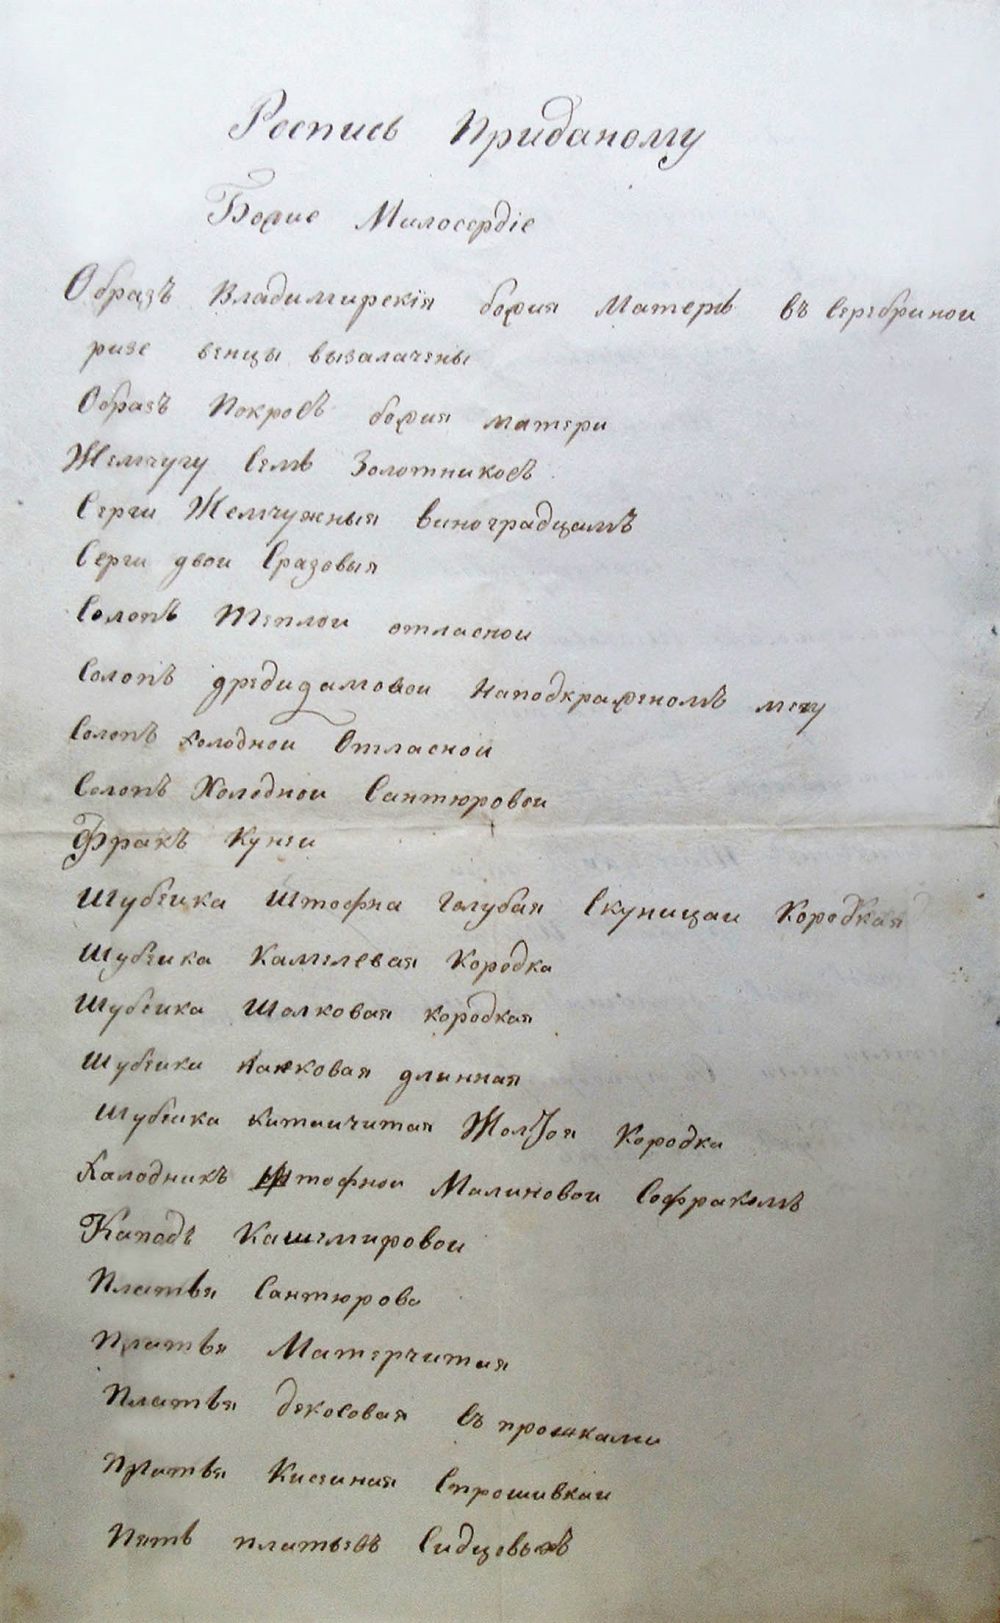 Роспись Приданому
Божие Милосердіе
Образъ Владимирскія божия Матерѣ въ Серебриной
ризе венцы вызалачены
Образъ Покровъ божия матери
Жемчугу Семь Золотниковъ
Серги Жемчужныя виноградцамъ
Серги двои Сразовыя
Солопъ Теплои отласнои
Солопъ дредидамовои Наподкраженомъ меху
Солопъ холоднои Отласнои
Солопъ Холоднои Сантюровои
Фракъ Куней
Шубеика Штофна Голубая Скуницаи Кородкая
Шубеика Камлевая Кородка
Шубеика Шолковая кородкая
Шубеика Нанковая длинная
Шубеика китаичитая Жолтоя Кородка
Халодникъ Штофнои Малиновои Софракомъ
Каподъ Кашемировои
Платья Сантюрова
Платья Матерчитая
Платья декосовая съ прошками
Платья Кисиная Спрошивкаи
Пять платьевъ Сидцовыхъ